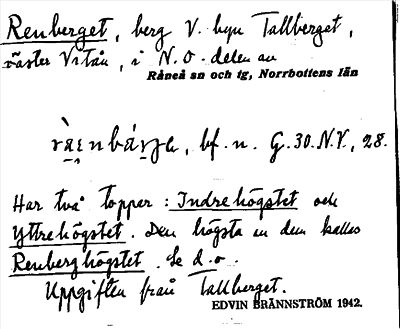 Renberget, berg V. byn Tallberget,
väster Vitån, i N.O. delen av
Råneå sn och tg, Norrbottens län
bf. n. G. 30. N.V., 28.
Har två toppar: Indrehögstet och
Yttrehögstet. Den högsta av dem kallas
Renberghögstet. Se d.o.
Uppgiften från Tallberget.
EDVIN BRÄNNSTRÖM 1942.